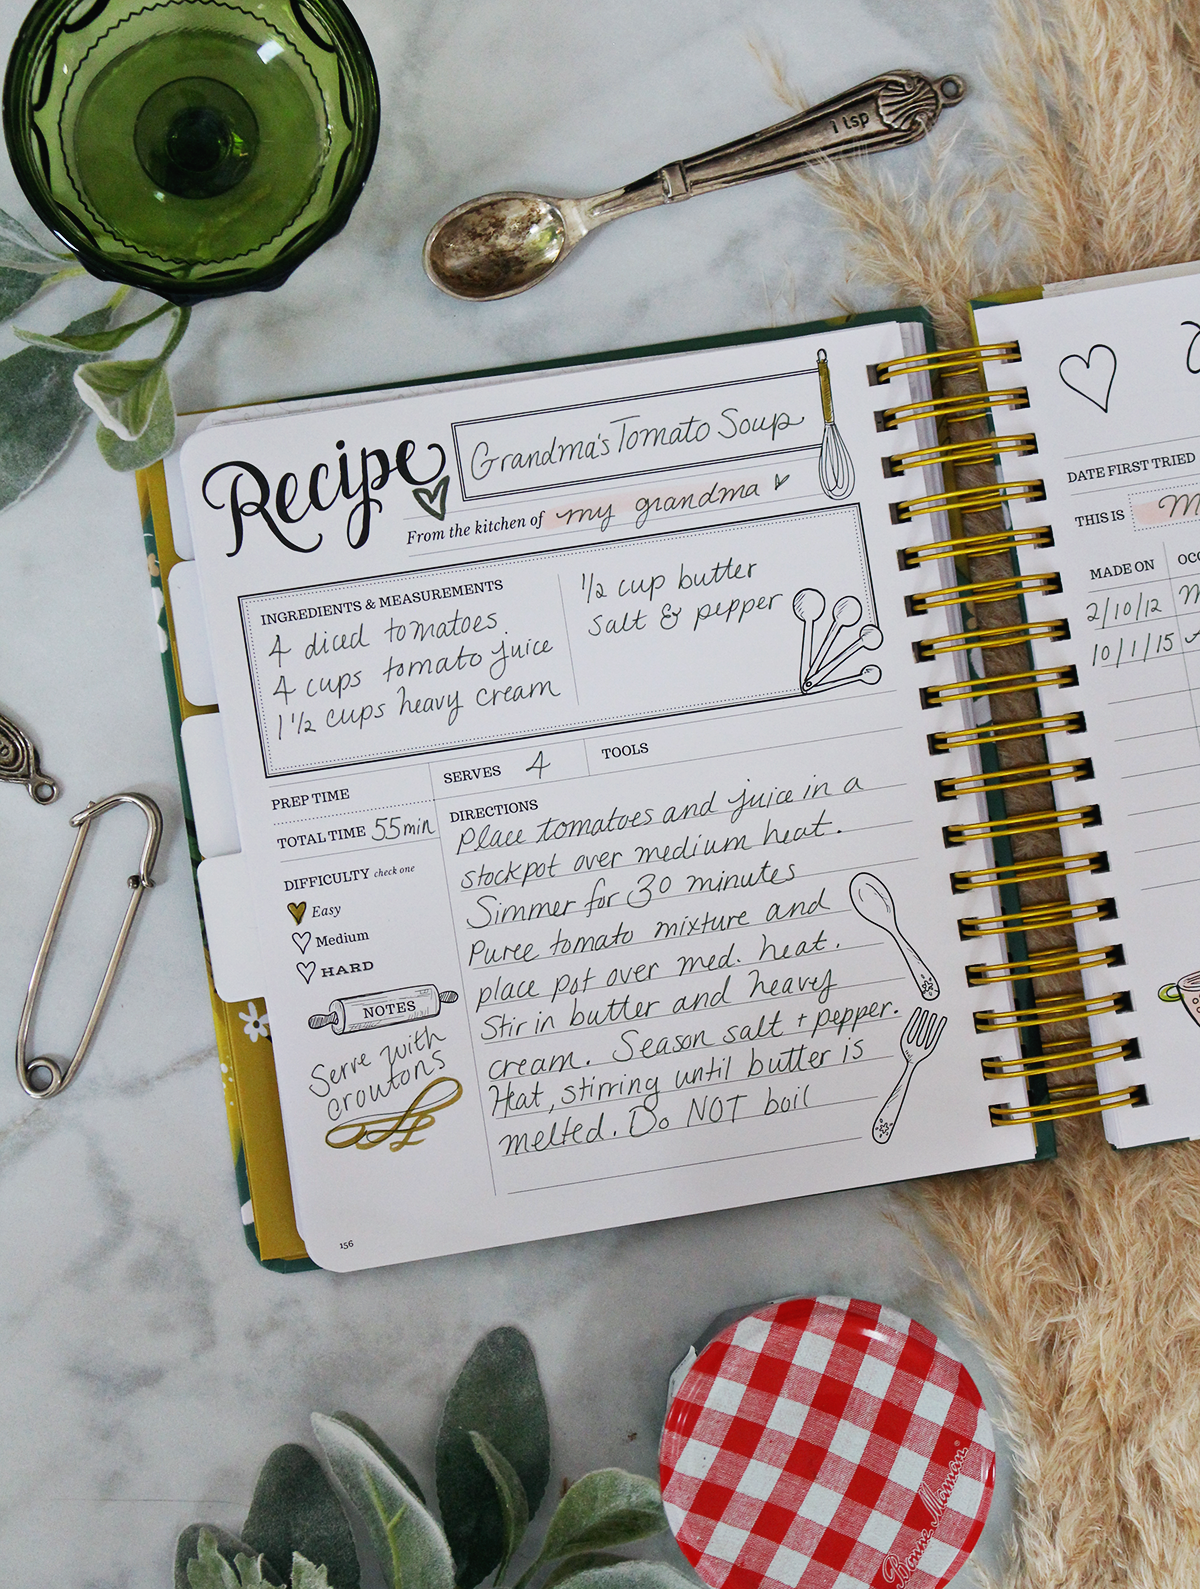 1 tsp
Recipe
Grandma's Tomato Soup
From the kitchen of my grandma
INGREDIENTS & MEASUREMENTS
4 diced tomatoes
4 cups tomato juice
1 1/2 cups heavy cream
1/2 cup butter
salt & pepper
PREP TIME
SERVES 4
TOOLS
TOTAL TIME 55min
DIFFICULTY check one
Easy
Medium
HARD
NOTES
Serve with
croutons
DIRECTIONS
Place tomatoes and juice in a
stockpot over medium heat.
Simmer for 30 minutes
Puree tomato mixture and
place pot over med. heat.
Stir in butter and heavy
cream. Season salt + pepper.
Heat, stirring until butter is
melted. Do NOT boil
156
DATE FIRST TRIED
THIS IS
MADE ON
2/10/12
10/1/15
Bonne Maman